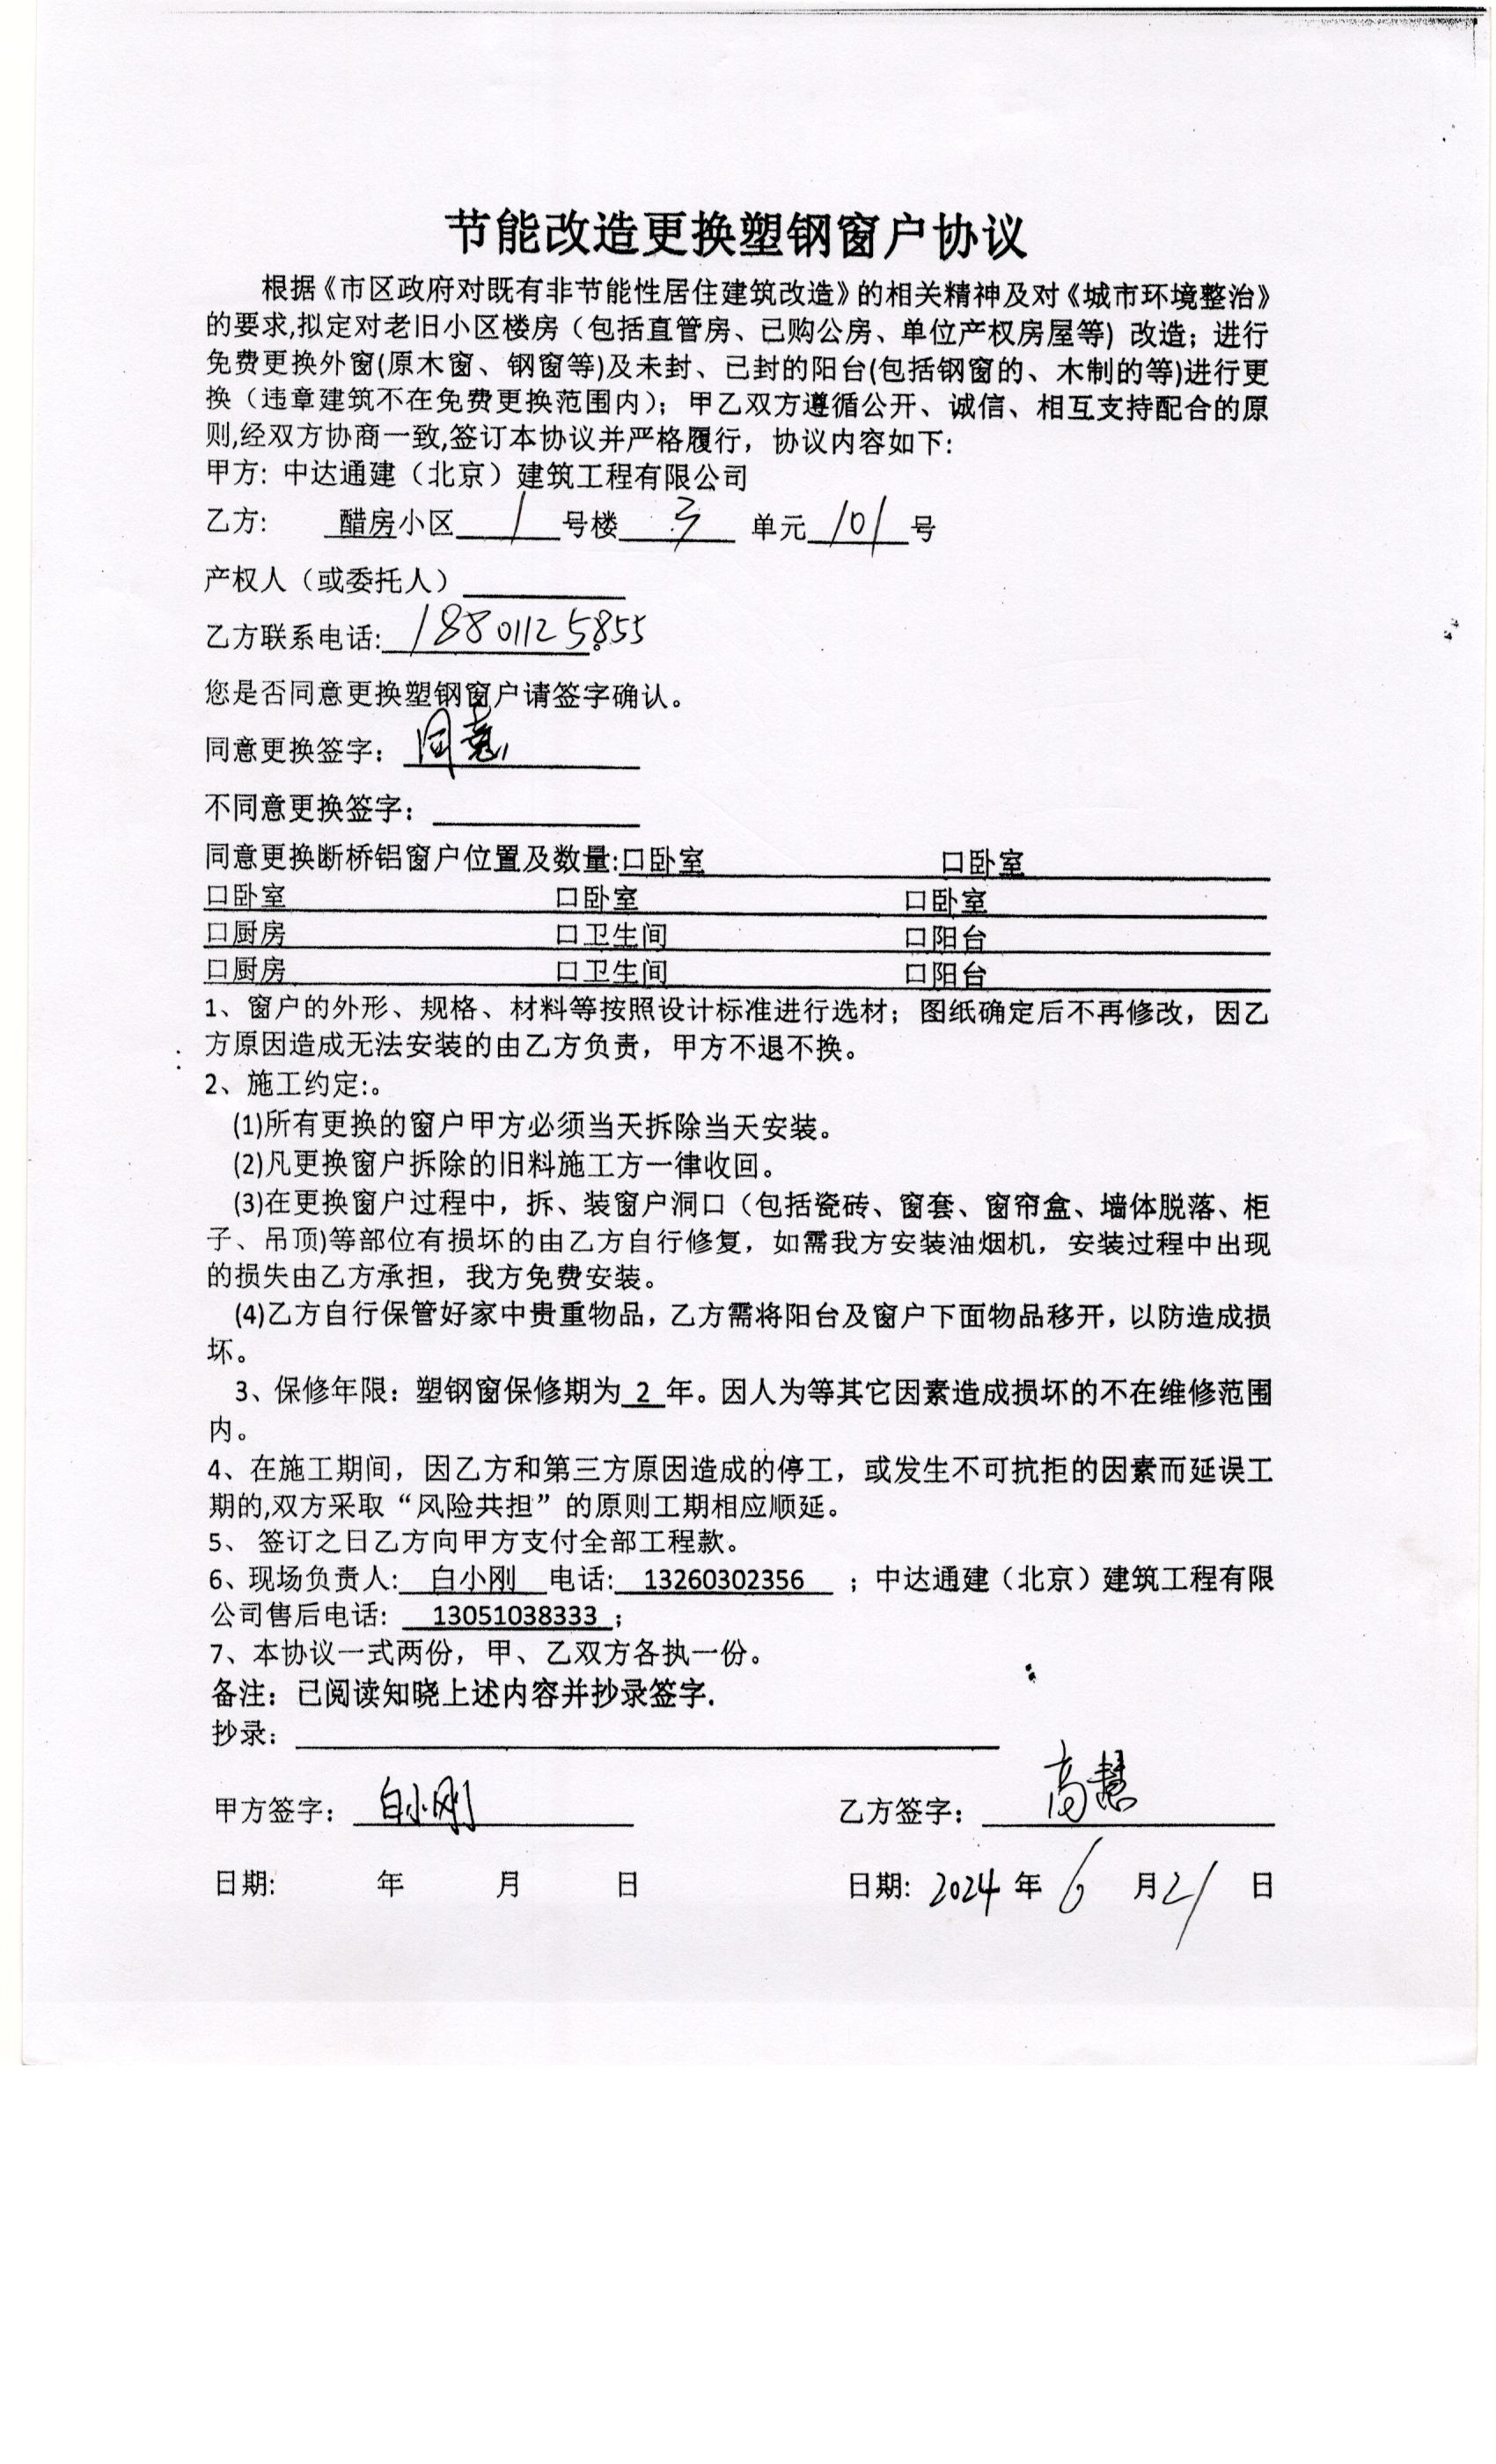 节能改造更换塑钢窗户协议
根据《市区政府对既有非节能性居住建筑改造》的相关精神及对《城市环境整治》
的要求,拟定对老旧小区楼房（包括直管房、已购公房、单位产权房屋等）改造；进行
免费更换外窗(原木窗、钢窗等)及未封、已封的阳台(包括钢窗的、木制的等)进行更
换（违章建筑不在免费更换范围内）；甲乙双方遵循公开、诚信、相互支持配合的原
则,经双方协商一致,签订本协议并严格履行，协议内容如下:
甲方: 中达通建（北京）建筑工程有限公司
乙方: 醋房小区 1 号楼 3 单元 101 号
产权人（或委托人）
乙方联系电话: 18801125855。
您是否同意更换塑钢窗户请签字确认。
同意更换签字: 同意
不同意更换签字:
同意更换断桥铝窗户位置及数量:口卧室 口卧室
口卧室 口卧室 口卧室
口厨房 口卫生间 口阳台
口厨房 口卫生间 口阳台
1、窗户的外形、规格、材料等按照设计标准进行选材；图纸确定后不再修改，因乙
方原因造成无法安装的由乙方负责，甲方不退不换。
2、施工约定:。
(1)所有更换的窗户甲方必须当天拆除当天安装。
(2)凡更换窗户拆除的旧料施工方一律收回。
(3)在更换窗户过程中，拆、装窗户洞口（包括瓷砖、窗套、窗帘盒、墙体脱落、柜
子、吊顶)等部位有损坏的由乙方自行修复，如需我方安装油烟机，安装过程中出现
的损失由乙方承担，我方免费安装。
(4)乙方自行保管好家中贵重物品，乙方需将阳台及窗户下面物品移开，以防造成损
坏。
3、保修年限：塑钢窗保修期为 2 年。因人为等其它因素造成损坏的不在维修范围
内。
4、在施工期间，因乙方和第三方原因造成的停工，或发生不可抗拒的因素而延误工
期的,双方采取“风险共担”的原则工期相应顺延。
5、 签订之日乙方向甲方支付全部工程款。
6、现场负责人: 白小刚 电话: 13260302356 ；中达通建（北京）建筑工程有限
公司售后电话: 13051038333 ；
7、本协议一式两份，甲、乙双方各执一份。
备注：已阅读知晓上述内容并抄录签字.
抄录：
甲方签字: 白小刚 乙方签字: 高慧
日期: 年 月 日 日期: 2024 年 6 月 21 日